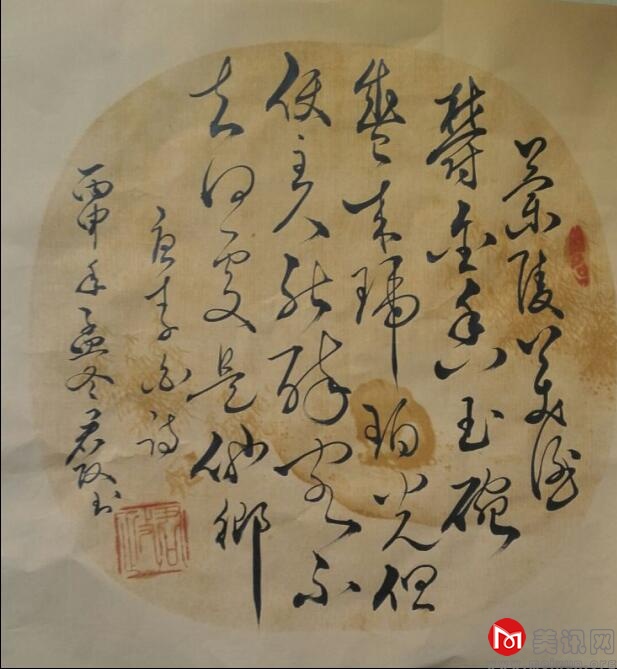 兰陵美酒
欝金香玉碗
盛来琥珀光但
使主人能醉客不
知何处是他鄉
唐李白诗
丙申年孟冬君书
美讯网